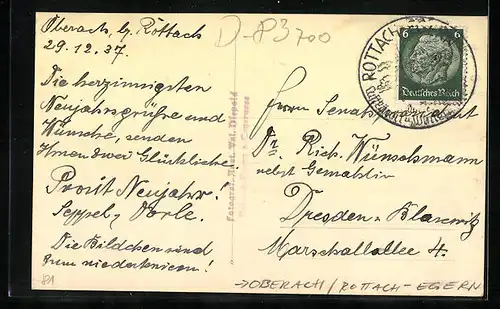 Oberach, b. Rottach
29.12.37.
Die herzinnigsten
Neujahrsgrüße und
Wünsche, senden
Ihnen zwei Glückliche
Prosit Neujahr!
Seppel, Vorle.
Die Bildchen sind
zum niederknieen!
81
D-83700
Fotograf. Anst. Val. Diepold
ROTTACH
6 6
Deutsches Reich
Herrn Senats
Dr. Rich. Wünschmann
nebst Gemahlin
Dresden-Blasewitz
Marschallallee 4.
→OBERACH/ROTTACH-EGERN